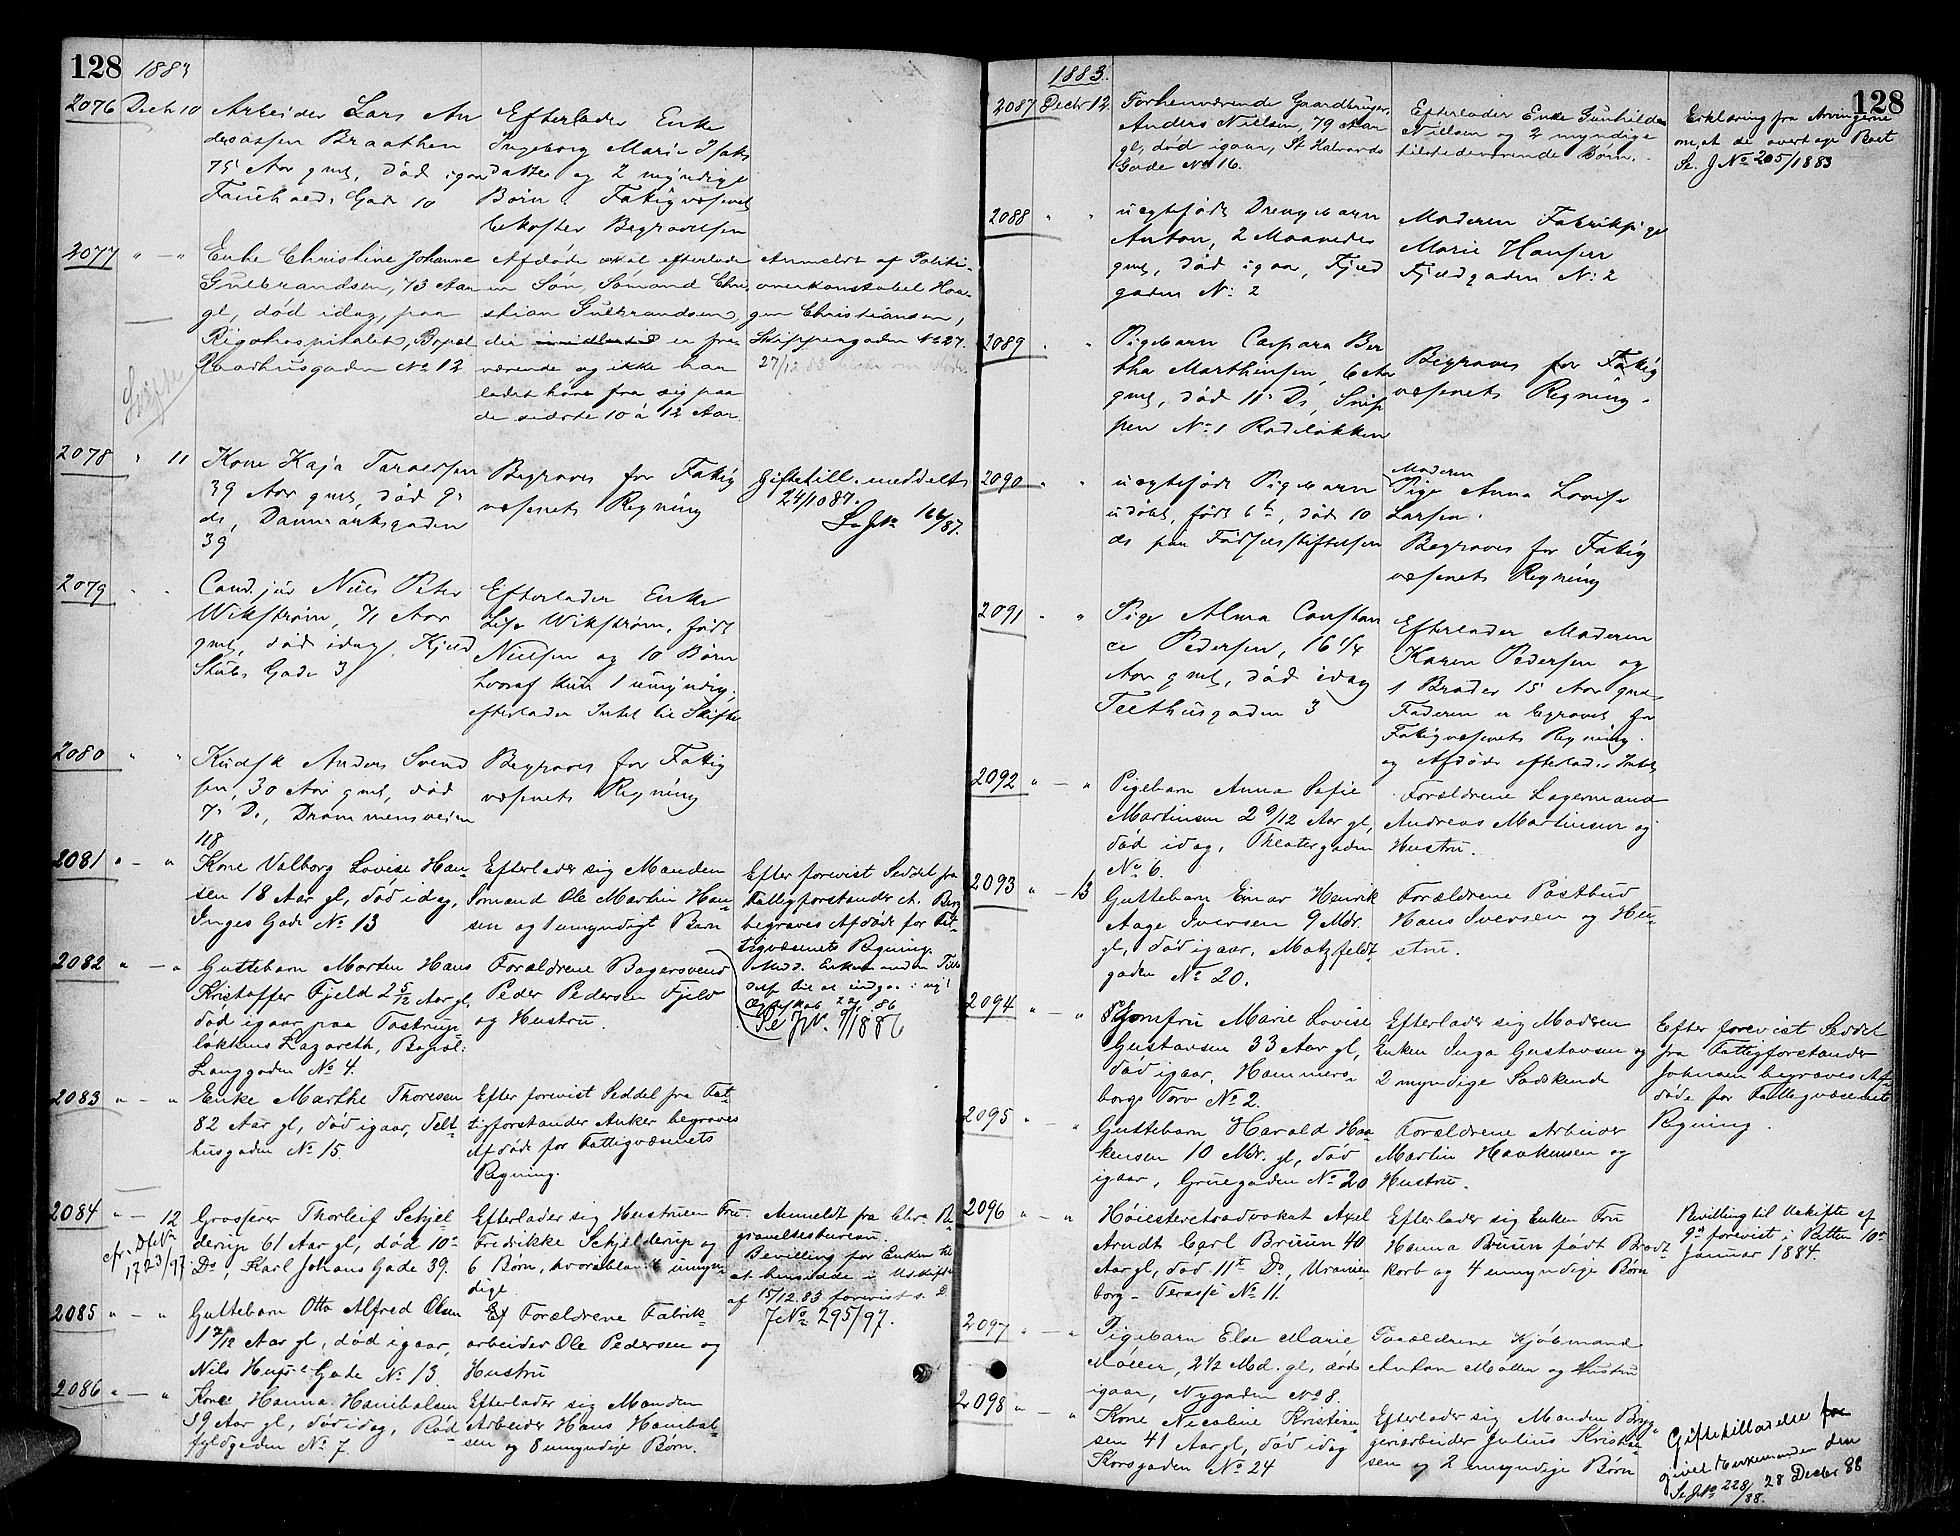 128 1883
2076 Decb 10 Arbeider Lars An
dersen Braathen
75 Aar gml, død igaar
Gade 10
Efterlader Enke
Ingeborg Marie Isaks
datter og 2 myndige
Børn. Fatigvæsenet
bekoster Begravelsen
2077 " — " Enke Christine Johanne
Gulbrandsen, 73 Aar
gl, død idag, paa
Rigshospitalet, Bopæl
Raadhusgaden No 12
Afdøde skal efterlade
en Søn, Sømand Chri
stian Gulbrandsen,
der er fra
værende og ikke har
ladet høre fra sig paa
de sidste 10 à 12 Aar
Anmeldt af Politi-
overkonstabel Haa-
gen Christiansen,
Skippergaden No 27.
27/12 83
2078 " 11 Kone Kaja Tarvedsen
39 Aar gml, død 9
ds, Danmarksgaden
39
Begraves for Fatig
væsenets Regning
Giftetill. meddelt
24/10 87.
Se JNo 166/87.
2079 " " Cand. jur Niels Peter
Wikstrøm, 71 Aar
gml, død idag, Kjeld
Stubs Gade 3
Efterlader Enke
Lise Wikstrøm, født
Nielsen og 10 Børn
hvoraf kun 1 umyndig,
efterlader Intet til Skifte
2080 " " Kudsk Anders Svend
sen, 30 Aar gml, død
7 Ds, Drammensveien
118
Begraves for Fatig
væsenets Regning
2081 " — " Kone Valborg Lovise Han-
sen 18 Aar gl, død idag,
Inges Gade No 13
Efterlader sig Manden
Sømand Ole Martin Han-
sen og 1 umyndigt Barn
Efter forevist Seddel fra
Fattigforstander A. Berg
begraves Afdøde for Fat-
tigvæsenets Regning.
Se JNo 7/1886
2082 " — " Guttebarn Morten Hans
Kristoffer Fjeld 2 5/12 Aar gl,
død igaar paa Tostrup
løkkens Lazareth, Bopæl:
Langgaden No 4.
Forældrene Bagersvend
Peder Pedersen Fjeld
og Hustru.
2083 " — " Enke Marthe Thoresen
82 Aar gl, død igaar, Telt-
husgaden No 15.
Efter forevist Seddel fra Fat-
tigforstander Anker begraves
Afdøde for Fattigvæsenets
Regning.
2084 " — 12 Grosserer Thorleif Schjel-
derup 61 Aar gl, død 10de
Ds, Karl Johans Gade 39.
cfr. DfNo
1723/97.
Efterlader sig Hustruen Fru
Fredrikke Schjelderup og
6 Børn, hvoraf umyn-
dige.
Anmeldt fra Chra Be-
gravelsesbureau.
Bevilling for Enken til
at hensidde i Uskifte
af 15/12.83 forevist s. D
JNo 295/97.
2085 " — " Guttebarn Otto Alfred Olsen
1 7/12 Aar gl, død igaar,
Nils Gade No 13.
Forældrene Fabrik-
arbeider Ole Pedersen og
Hustru
2086 " — " Kone Hanna Hanibalsen
39 Aar gl, død idag, Rød
fyldgaden No 7.
Efterlader sig Manden
Arbeider Hans Hanibal-
sen og 8 umyndige Børn.
1883. 128
2087 Decbr 12. Forhenværende Gaardbruger
Anders Nielsen, 79 Aar
gl, død igaar, St Halvards
Gade No 16.
Efterlader Enke Gunhilde
Nielsen og 2 myndige
tilstedeværende Børn.
Erklæring fra Arvingerne
om, at de overtage Boet
Se. JNo 205/1883
2088 " " uegtefødt Drengebarn
Anton, 2 Maaneder
gml, død igaar, Fjeld
gaden No 2
Moderen Fabrikpige
Marie Hansen
Fjeldgaden No 2
2089 " " Pigebarn Caspara Ber
tha Marthinsen, 6 Aar
gml, død 11 Ds, Snip
pen No 1 Rodeløkken
Begraves for Fatig
væsenets Regning.
2090 " " uegtefødt Pigebarn
udøbt, født 6te, død 10
ds paa Fødselsstiftelsen
Moderen
Pige Anna Lovise
Larsen.
Begraves for Fatig
væsenets Regning
2091 " " Pige Alma Constan
ce Pedersen, 16 1/4
Aar gml, død idag
Telthusgaden 3
Efterlader Moderen
Karen Pedersen og
1 Broder 15 Aar gml
Faderen er begravet for
Fatigvæsenets Regning.
og Afdøde efterlader Intet
2092 " — " Pigebarn Anna Sofie
Martinsen 2 9/12 Aar gl,
død idag, Theatergaden
No 6.
Forældrene Lagermand
Andreas Martinsen og
Hustru.
2093 " — 13 Guttebarn Einar Henrik
Aage Iversen 9 Mdr.
gl, død igaar, Motzfeldt-
gaden No 20.
Forældrene Postbud
Hans Iversen og Hu-
stru.
2094 " — " Jomfru Marie Lovise
Gustavsen 33 Aar gl,
død igaar, Hammers-
borgs Torv No 2.
Efterlader sig Moderen
Enken Inga Gustavsen og
2 myndige Sødskende
Efter forevist Seddel
fra Fattigforstander
Johnsen begraves Af-
døde for Fattigvæsenets
Regning.
2095 " — " Guttebarn Harald Haa-
kensen 10 Mdr. gl, død
igaar, Gruegaden No 20
Forældrene Arbeider
Martin Haakensen og
Hustru.
2096 " — " Høiesteretsadvokat Axel
Arndt Carl Bruun 40
Aar gl, død 11te Ds, Uranien
borg-Terasse No 11.
Efterlader sig Enken Fru
Hanna Bruun født Brodt-
korb og 4 umyndige Børn
Bevilling til Uskifte af
9de forevist i Retten 10de
Januar 1884.
2097 " — " Pigebarn Else Marie
Møller, 2 1/2 Md. gl, død
igaar, Nygaden No 8.
Forældrene Kjøbmand
Anton Møller og Hustru
2098 " — " Kone Nicoline Kristian-
sen 41 Aar gl, død idag
Korsgaden No 24
Efterlader sig Manden Bryg-
geriarbeider Julius Kristian-
sen og 2 umyndige Børn
Giftetilladelse
givet Enkemanden den
28 Decbr 88
Se JNo 228/88.